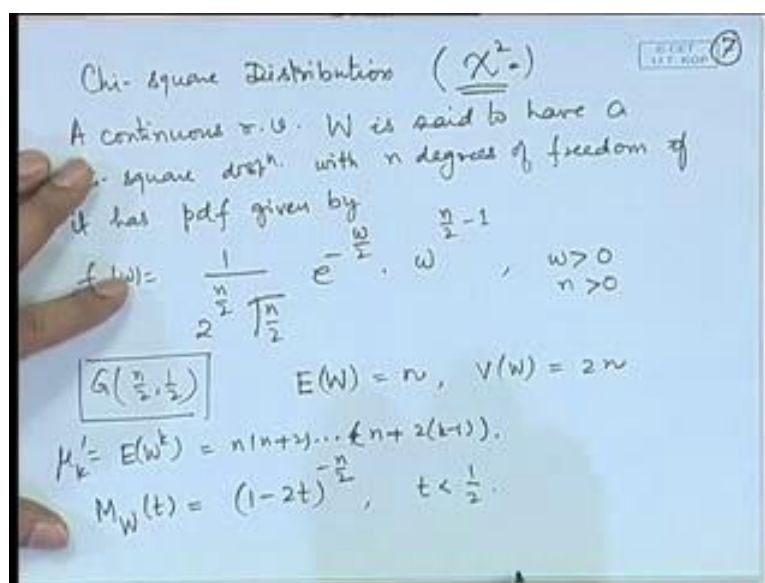 Chi-square Distribution (χ²-)
A continuous r.v. W is said to have a
-square distⁿ. with n degrees of freedom if
it has pdf given by
f (w) = 1 / (2^{n/2} Γ(n/2)) e^{-w/2} . w^{n/2 - 1} , w>0
n>0
G(n/2, 1/2) E(W) = n, V(W) = 2n
μ'_k = E(W^k) = n(n+2)...(n+2(k-1)).
M_W(t) = (1-2t)^{-n/2}, t < 1/2.
7